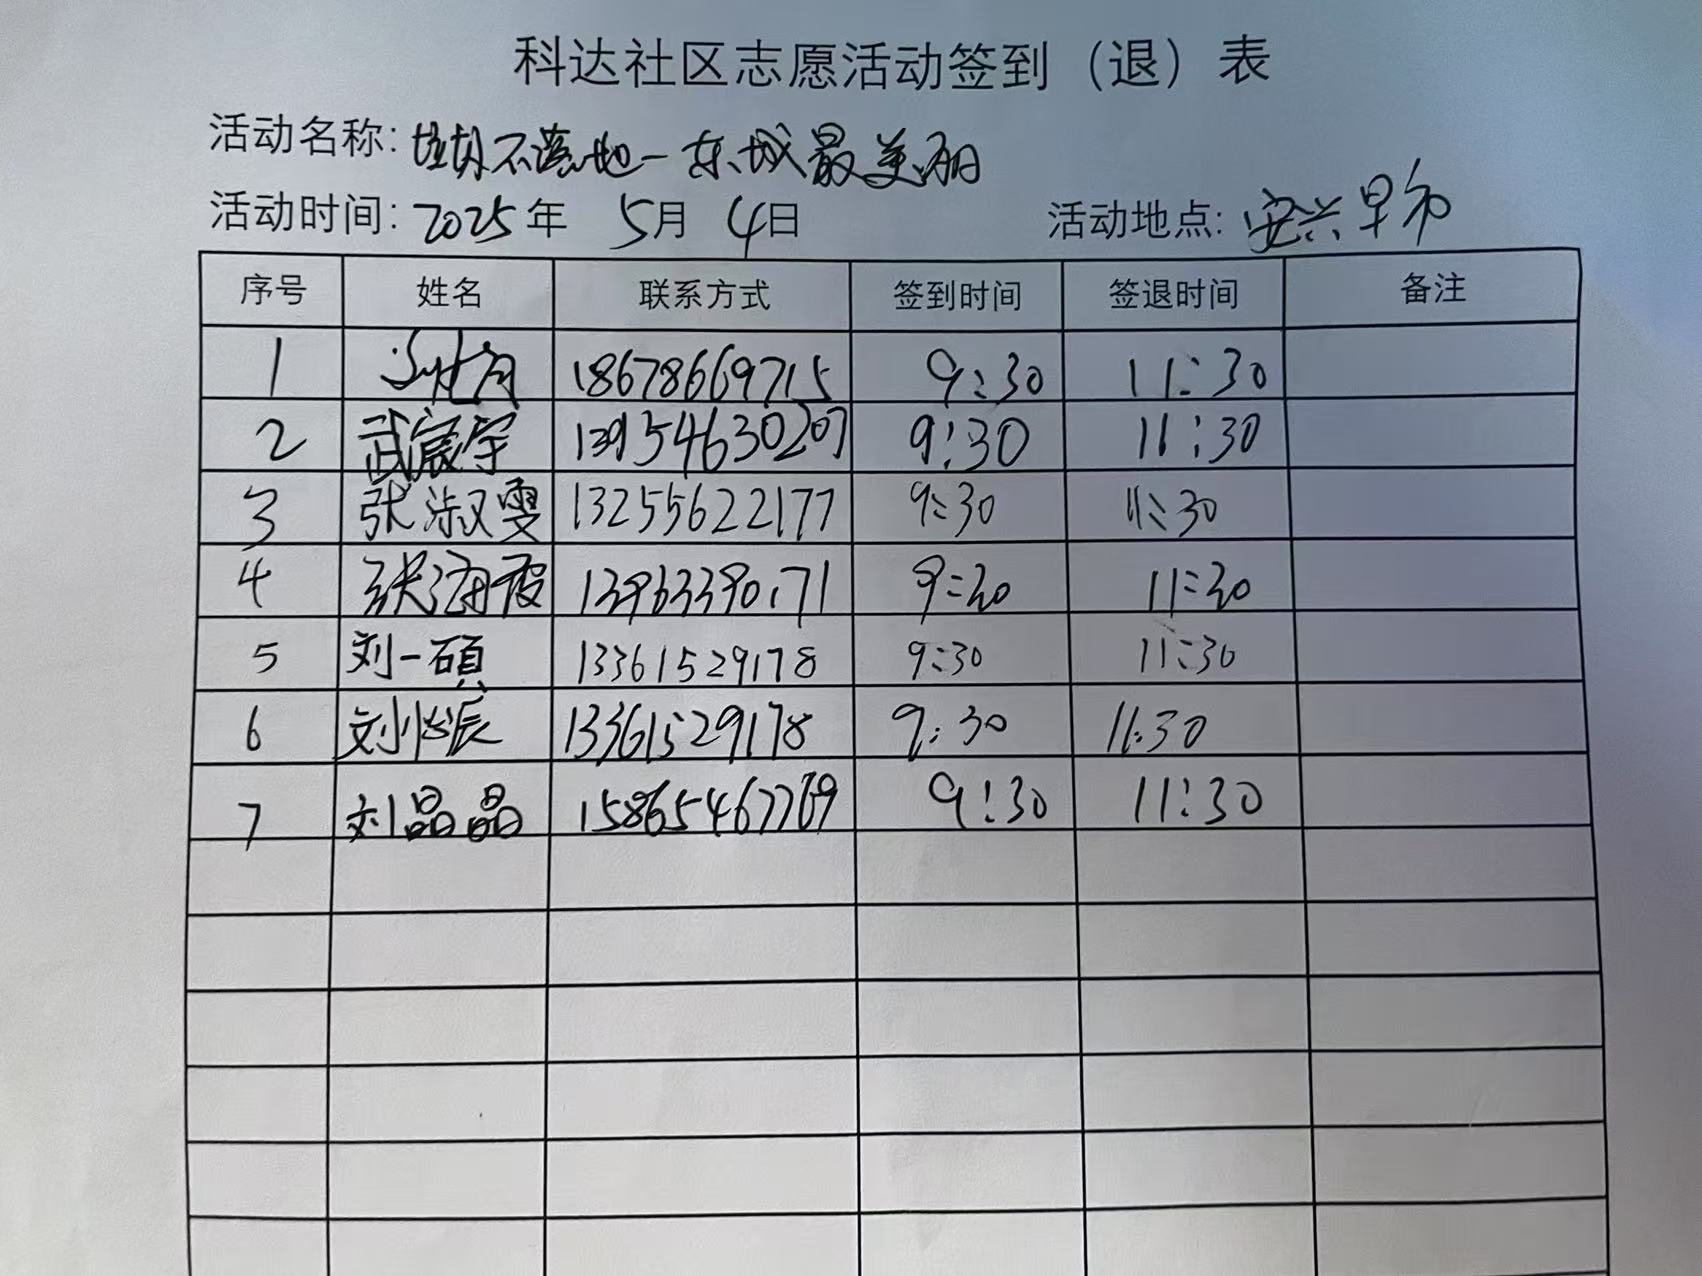 科达社区志愿活动签到（退）表
活动名称: 垃圾不落地-东城最美丽
活动时间: 2025年 5月 4日 活动地点: 安兴早市
序号 姓名 联系方式 签到时间 签退时间 备注
1 18678669715 9:30 11:30
2 武宸宇 13954630207 9:30 11:30
3 张淑雯 13255622177 9:30 11:30
4 张海霞 13963390171 9:30 11:30
5 刘一硕 13361529178 9:30 11:30
6 刘怡辰 13361529178 9:30 11:30
7 刘晶晶 15865467769 9:30 11:30